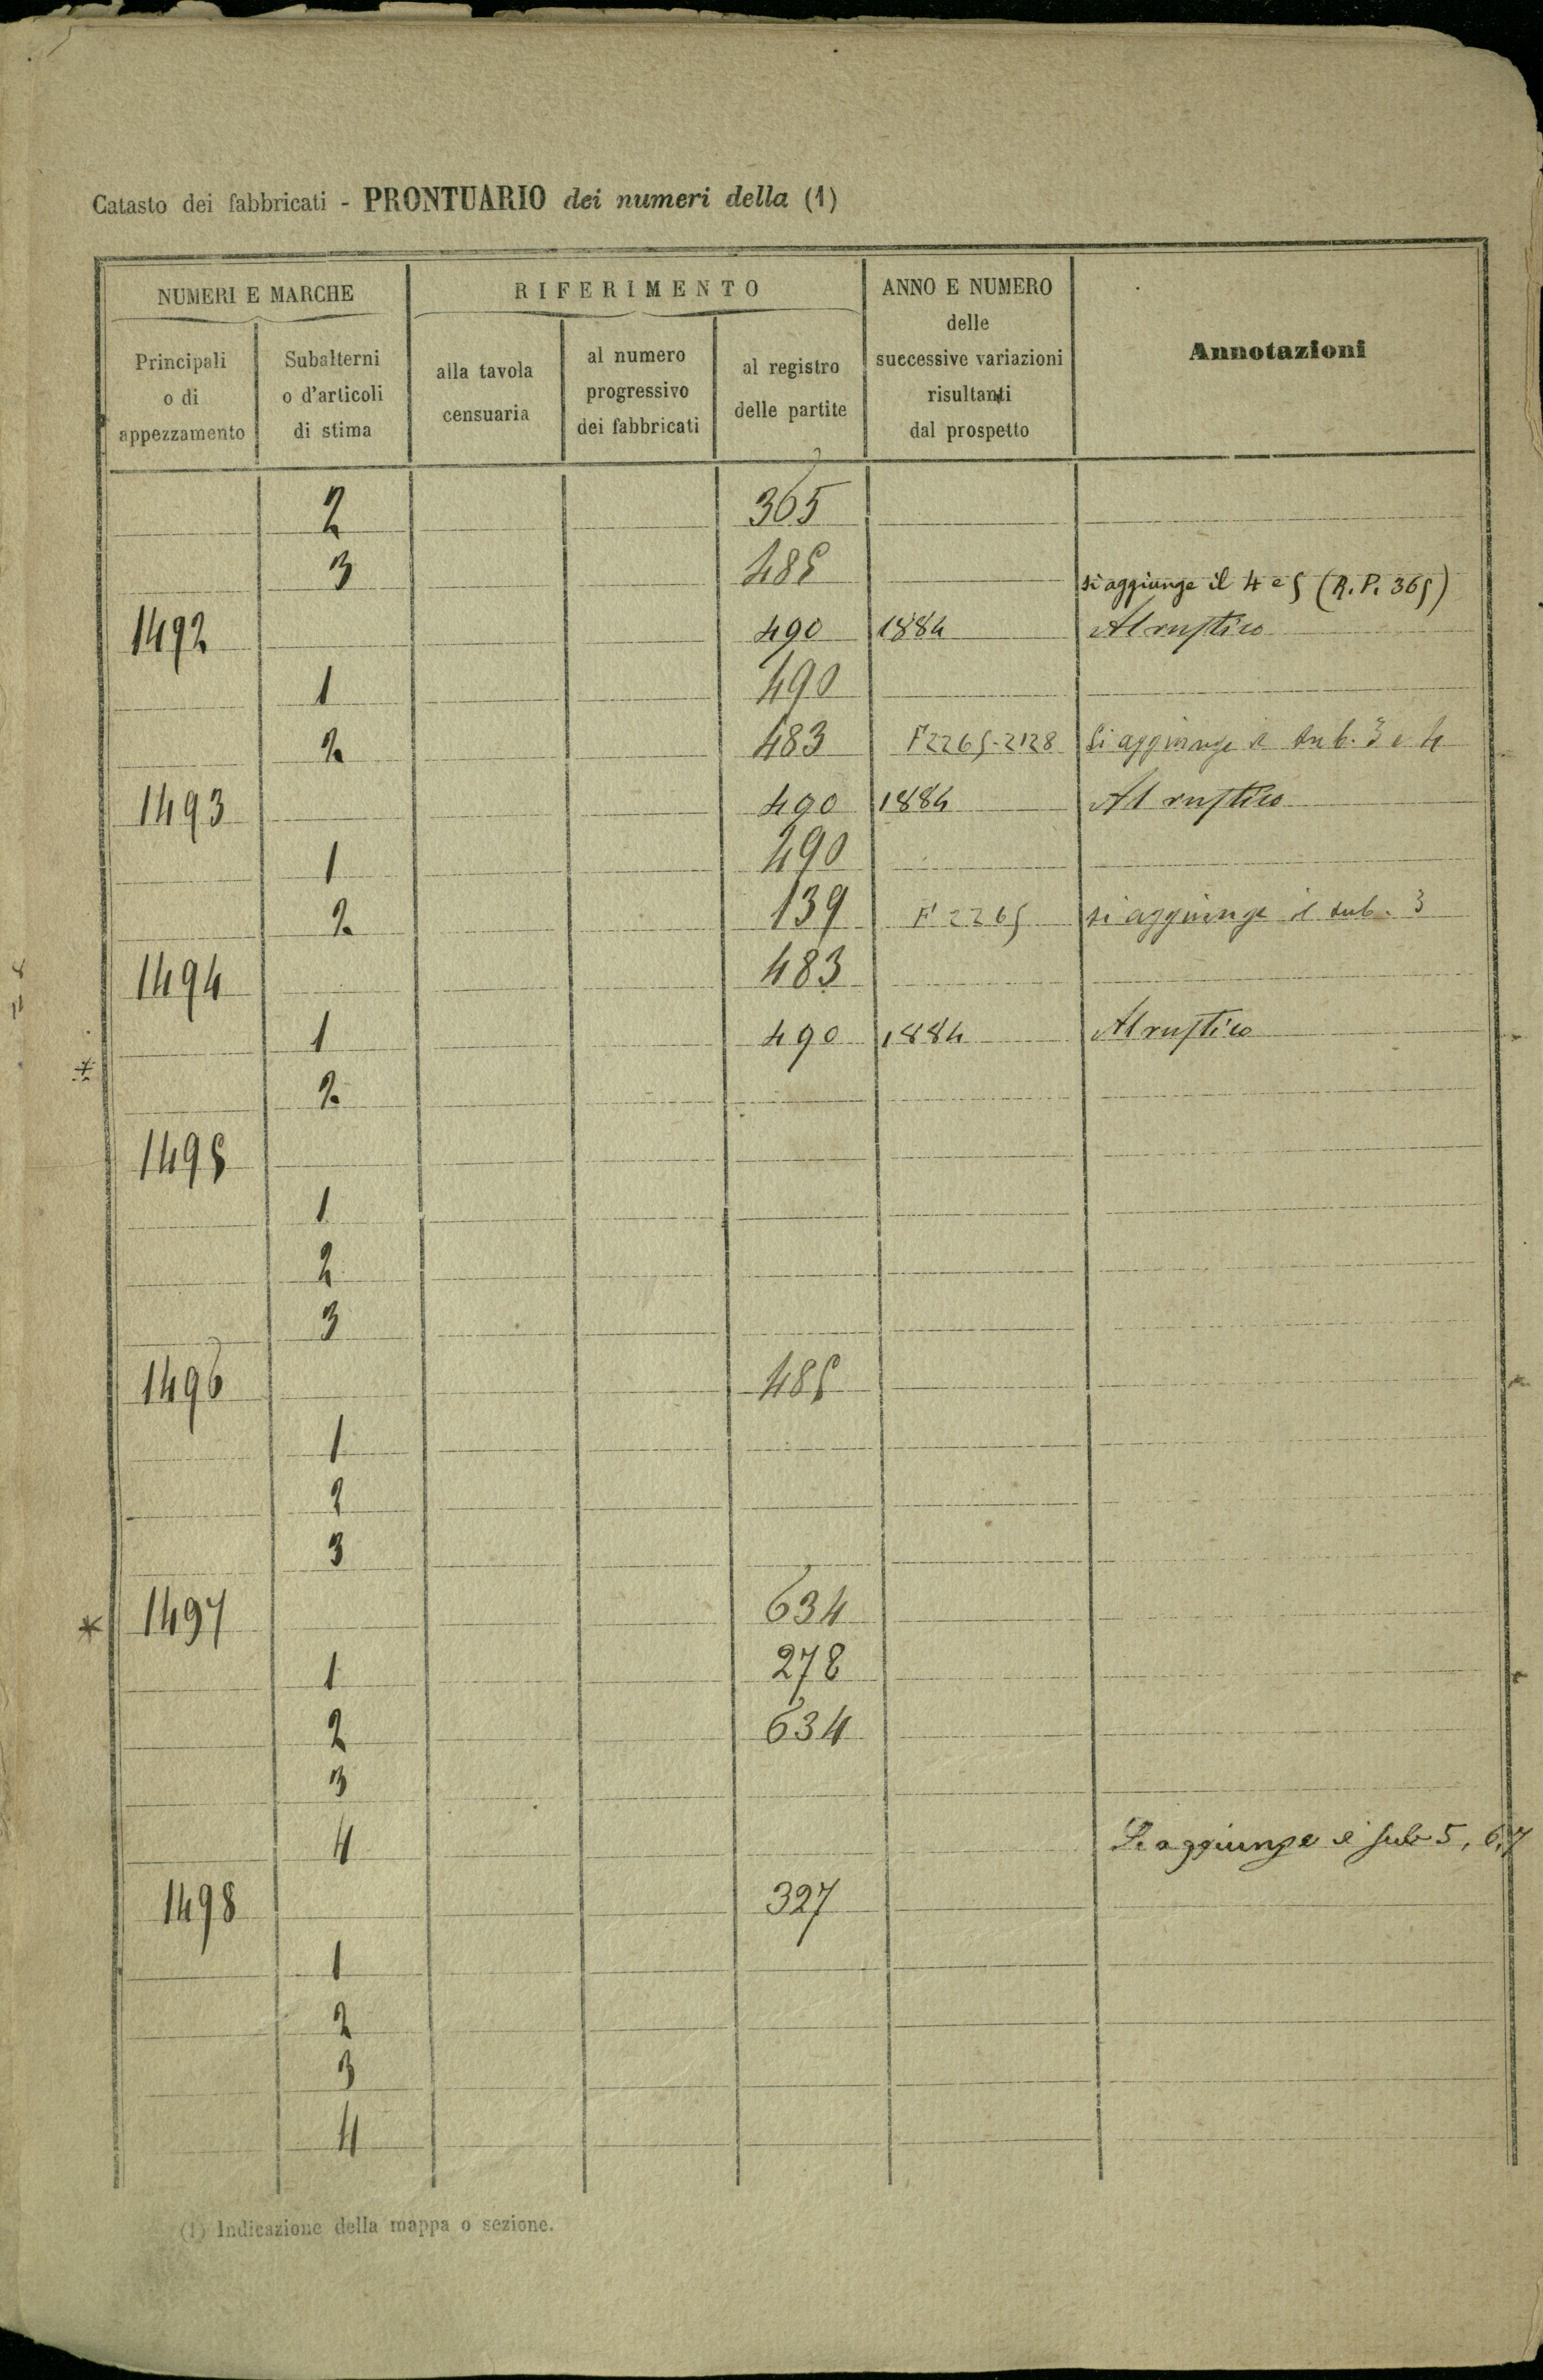 Catasto dei fabbricati - PRONTUARIO dei numeri della (1)
NUMERI E MARCHE RIFERIMENTO ANNO E NUMERO delle successive variazioni risultanti dal prospetto Annotazioni
Principali o di appezzamento Subalterni o d'articoli di stima alla tavola censuaria al numero progressivo dei fabbricati al registro delle partite
2 365
3 485 si aggiunge il 4 e 5 (R.P. 365)
1492 490 1884 Al rustico
1 490
2 483 F 2265-2128 Si aggiunge i sub. 3 e 4
1493 490 1884 Al rustico
1 490
2 139 F 2265 si aggiunge il sub. 3
1494 483
1 490 1884 Al rustico
2
1495
1
2
3
1496 485
1
2
3
* 1497 634
1 278
2 634
3
4 Si aggiunge i sub 5, 6, 7
1498 327
1
2
3
4
(1) Indicazione della mappa o sezione.